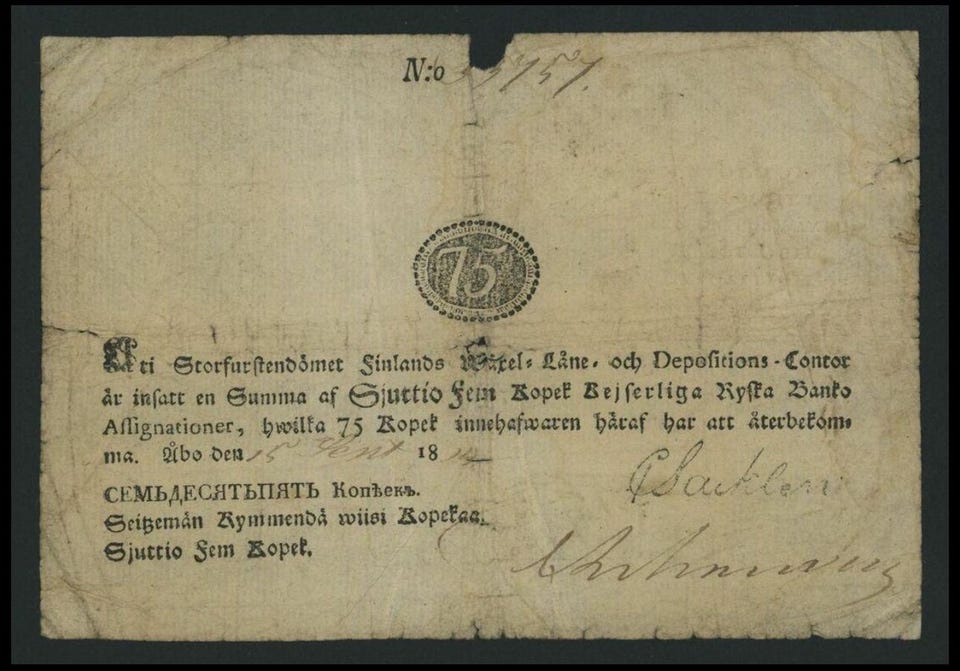 N:o
75
Uti Storfurstendömet Finlands Wäxel- Låne- och Depositions-Contor
är insatt en Summa af Sjuttio Fem Kopek Kejserliga Ryska Banko
Assignationer, hwilka 75 Kopek innehafwaren häraf har att återbekom-
ma. Åbo den 15 Sept 18
СЕМЬДЕСЯТЬПЯТЬ Копѣекъ.
Seitzemän Kymmendä wiisi Kopekaa.
Sjuttio Fem Kopek.